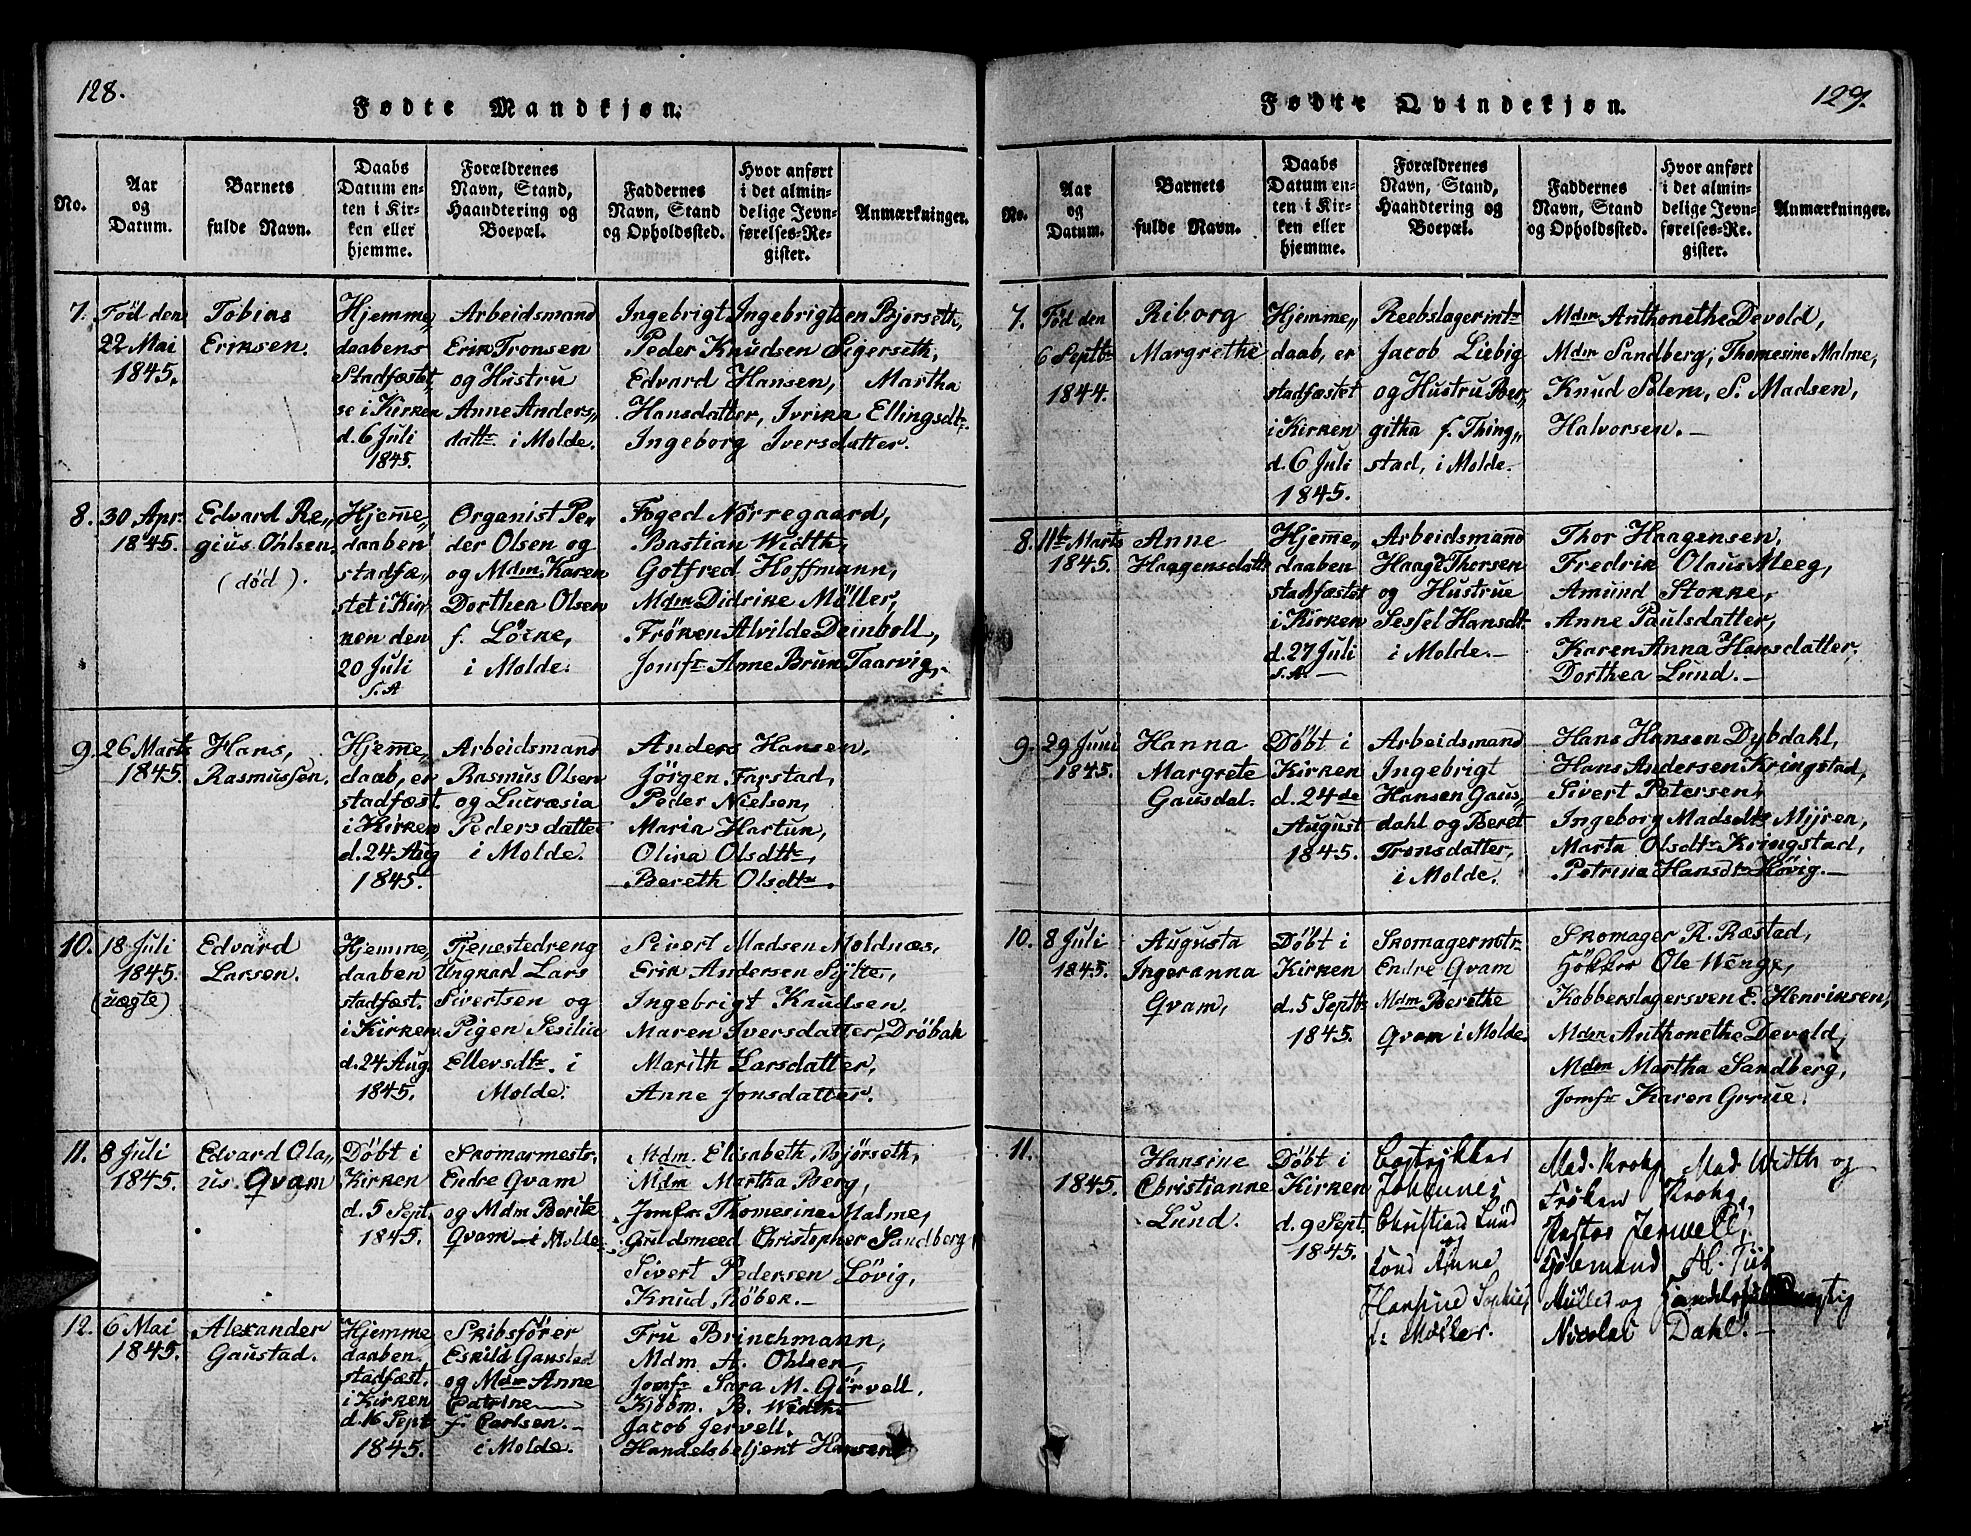 128.
Fødte Mandkjøn.
No.
Aar
og
Datum.
Barnets
fulde Navn.
Daabs
Datum en-
ten i Kir-
ken eller
hjemme.
Forældrenes
Navn, Stand,
Haandtering og
Boepæl.
Faddernes
Navn, Stand
og Opholdssted.
Hvor anført
i det almin-
delige Jevn-
førelses-Re-
gister.
Anmærkninger.
7.
Fød den
22 Mai
1845.
Tobias
Eriksen.
Hjemme„
daabens
Stadfæstel„
se i Kirken
d. 6 Juli
1845.
Arbeidsmand
Erik Tronsen
og Hustru
Anne Anders„
datt. i Molde.
Ingebrigt Ingebrigtsen Bjorseth,
Peder Knudsen Sigerseth,
Edvard Hansen, Martha
Hansdatter, Ivrika Ellingsdtr.
Ingeborg Iversdatter.
8.
30 Apr.
1845.
Edvard Re„
gius Ohlsen.
(død).
Hjemme„
daaben
stadfæ„
stet i Kir„
ken den
20 Juli
s. A
Organist Pe„
der Olsen og
og Mdm. Karen
Dorthea Olsen
f. Löcke,
i Molde.
Foged Nörregaard,
Bastian Width,
Gotfred Hoffmann,
Mdm Didrike Möller,
Fröken Alvilde Deinboll,
Jomfr Anne Brun Taarvig,
9.
26 Marts
1845.
Hans,
Rasmussen.
Hjemme„
daab, er
stadfæst.
i Kirken
d. 24 Aug
1845.
Arbeidsmand
Rasmus Olsen
og Lucræsia
Pedersdatter
i Molde.
Anders Hansen,
Jörgen Farstad,
Peder Nielsen,
Maria Hartun,
Olina Olsdtr,
Bereth Olsdtr.
10.
18 Juli
1845.
(uægte)
Edvard
Larsen.
Hjemme„
daaben
stadfæst.
i Kirken.
d. 24 Aug.
1845.
Tjenestedreng
Ungkarl Lars
Sivertsen og
Pigen Sesilia
Ellersdtr. i
Molde.
Sivert Madsen Moldnæs,
Erik Andersen Sylte,
Ingebrigt Knudsen,
Maren Iversdatter, Dröbak
Marith Larsdatter,
Anne Jonsdatter.
11.
8 Juli
1845.
Edvard Ola„
us. Qvam
Døbt i
Kirken
d. 5 Sept.
1845.
Skomarmestr.
Endre Qvam
og Mdm Berite
Qvam – i Molde
Mdm. Elisabeth Bjørseth,
Mdm Martha Berg,
Jomfr. Thomesine Malme,
Guldsmed Christopher Sandberg
Sivert Pedersen Lövig,
Knud Røbek.–
12.
6 Mai
1845.
Alexander
Gaustad.
Hjemme„
daaben.
stadfæst.
i Kirken
d. 16 Sept
1845.
Skibsfører
Eskild Gaustad
og Mdm Anne
Catrine
f. Carlsen.–
i Molde.
Fru Brinchmann,
Mdm. A. Ohlsen,
Jomfr Sara M. Gørvell.
Kjöbm. B. Widthe
Jacob Jervell.
Handelsbetjent Hansen
129.
Fødte Qvindekjøn.
No.
Aar
og
Datum.
Barnets
fulde Navn.
Daabs
Datum en-
ten i Kir-
ken eller
hjemme.
Forældrenes
Navn, Stand,
Haandtering og
Boepæl.
Faddernes
Navn, Stand
og Opholdssted.
Hvor anført
i det almin-
delige Jevn-
førelses-Re-
gister.
Anmærkninger.
7.
Fød den
6 Septbr
1844.
Riborg
Margrethe
Hjemme„
daab, er
stadfæstet
i Kirken
d. 6 Juli
1845.
Reebslagermtr
Jacob Liebig
og Hustru Ber„
githa f. Thing„
stad, i Molde.
Mdm Anthonethe Devold,
Mdm Sandberg, Thomesine Malme,
Knud Solem, S. Madsen,
Halvorsen.–
8.
11te Marts
1845.
Anne
Haagensdatt.
Hjemme„
daaben
stadfæstet
i Kirken
d. 27 Juli
s. A.–
Arbeidsmand
Haagd Thorsen
og Hustrue
Sessel Hansdt.
i Molde.–
Thor Haagensen,
Fredrik Olaus Meeg,
Amund Stokke,
Anne Paulsdatter,
Karen Anna Hansdatter,
Dorthea Lund.–
9.
29 Juni
1845.
Hanna
Margrete
Gausdal.
Døbt i
Kirken
d. 24de
August
1845.
Arbeidsmand
Ingebrigt
Hansen Gaus„
dahl og Beret
Tronsdatter,
i Molde.
Hans Hansen Dybdahl,
Hans Andersen Kringstad,
Sivert Petersen,
Ingeborg Madsdtr Myren,
Marta Olsdtr Kringstad,
Petrina Hansdtr Høvig.–
10.
8 Juli
1845.
Augusta
Ingeranna
Qvam,
Døbt i
Kirken
d. 5 Septbr
1845.
Skomagermtr.
Endre Qvam
Mdm Berethe
Qvam i Molde.
Skomager R. Ræstad,
Høkker Ole Wenge,
Kobberslagersven E. Henriksen,
Mdm Anthonethe Devold,
Mdm Martha Sandberg,
Jomfr Karen Grrue.
11.
1845.
Hansine
Christianne
Lund.
Døbt i
Kirken
d. 9 Sept.
1845.
Bogtrykker
Johannes
Christian Lund
og
Kone Anne
Hansine Sophie
f. Møller.
Mad. Krohg, Mad. Width og
Frøken Krohg,
Pastor Jervell,
Kjøbmand
Müller og
Nicolai Dahl.–